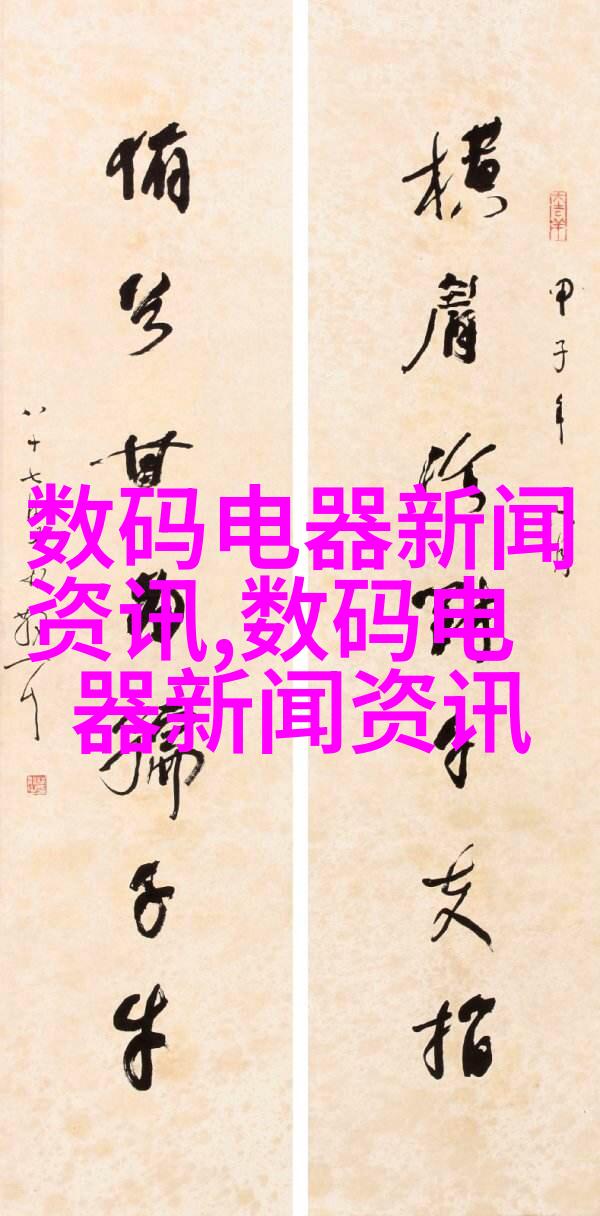 数码电器新闻
资讯,数码电
器新闻资讯
甲子年
横眉冷對千夫指
俯首甘为孺子牛
八十七